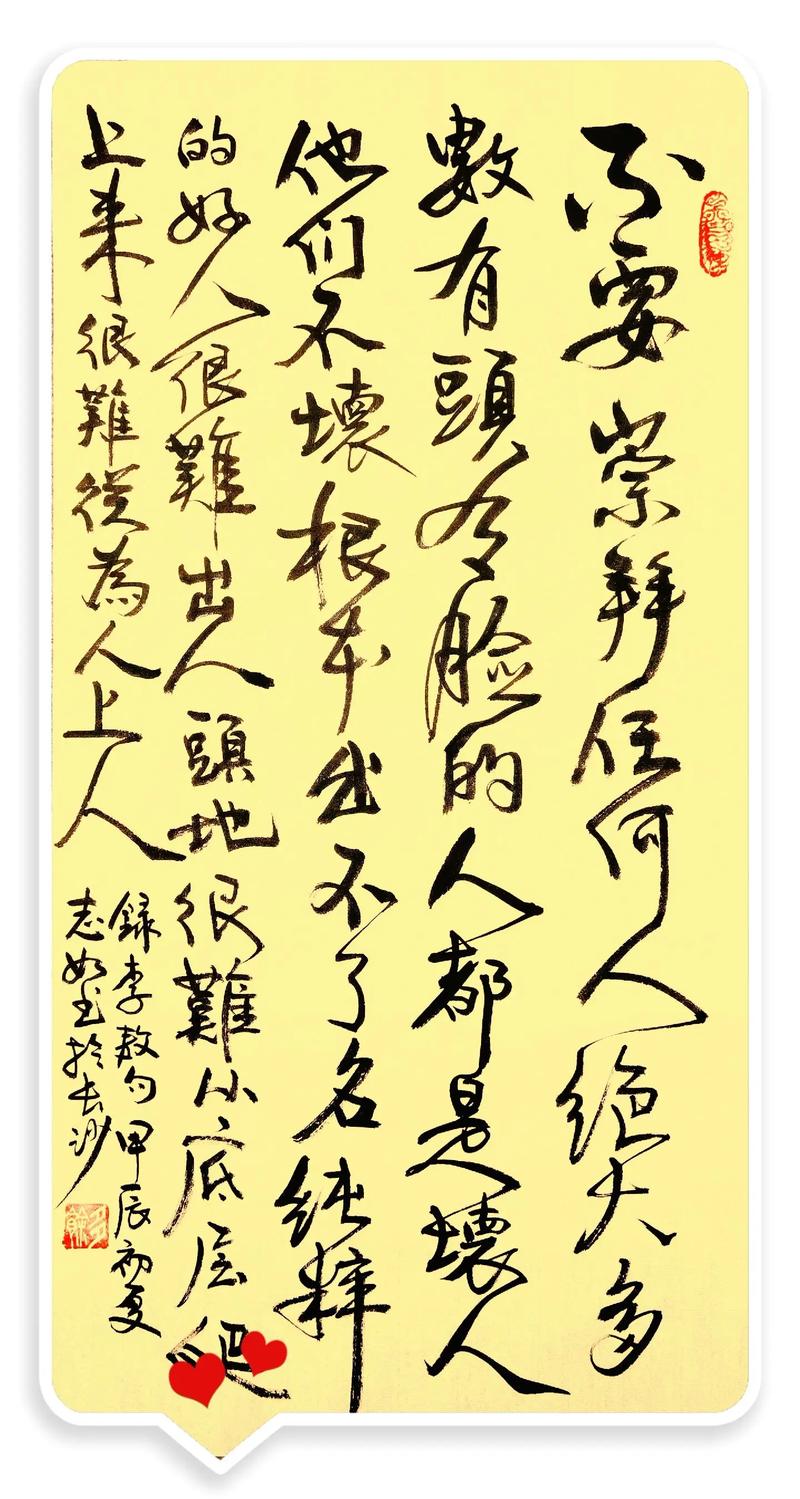 不要崇拜任何人絶大多
數有頭有臉的人都是壞人
他们不壞根本出不了名純粹
的好人很難出人頭地很難从底层爬
上来很難成為人上人
録李敖句甲辰初夏
志如书於长沙